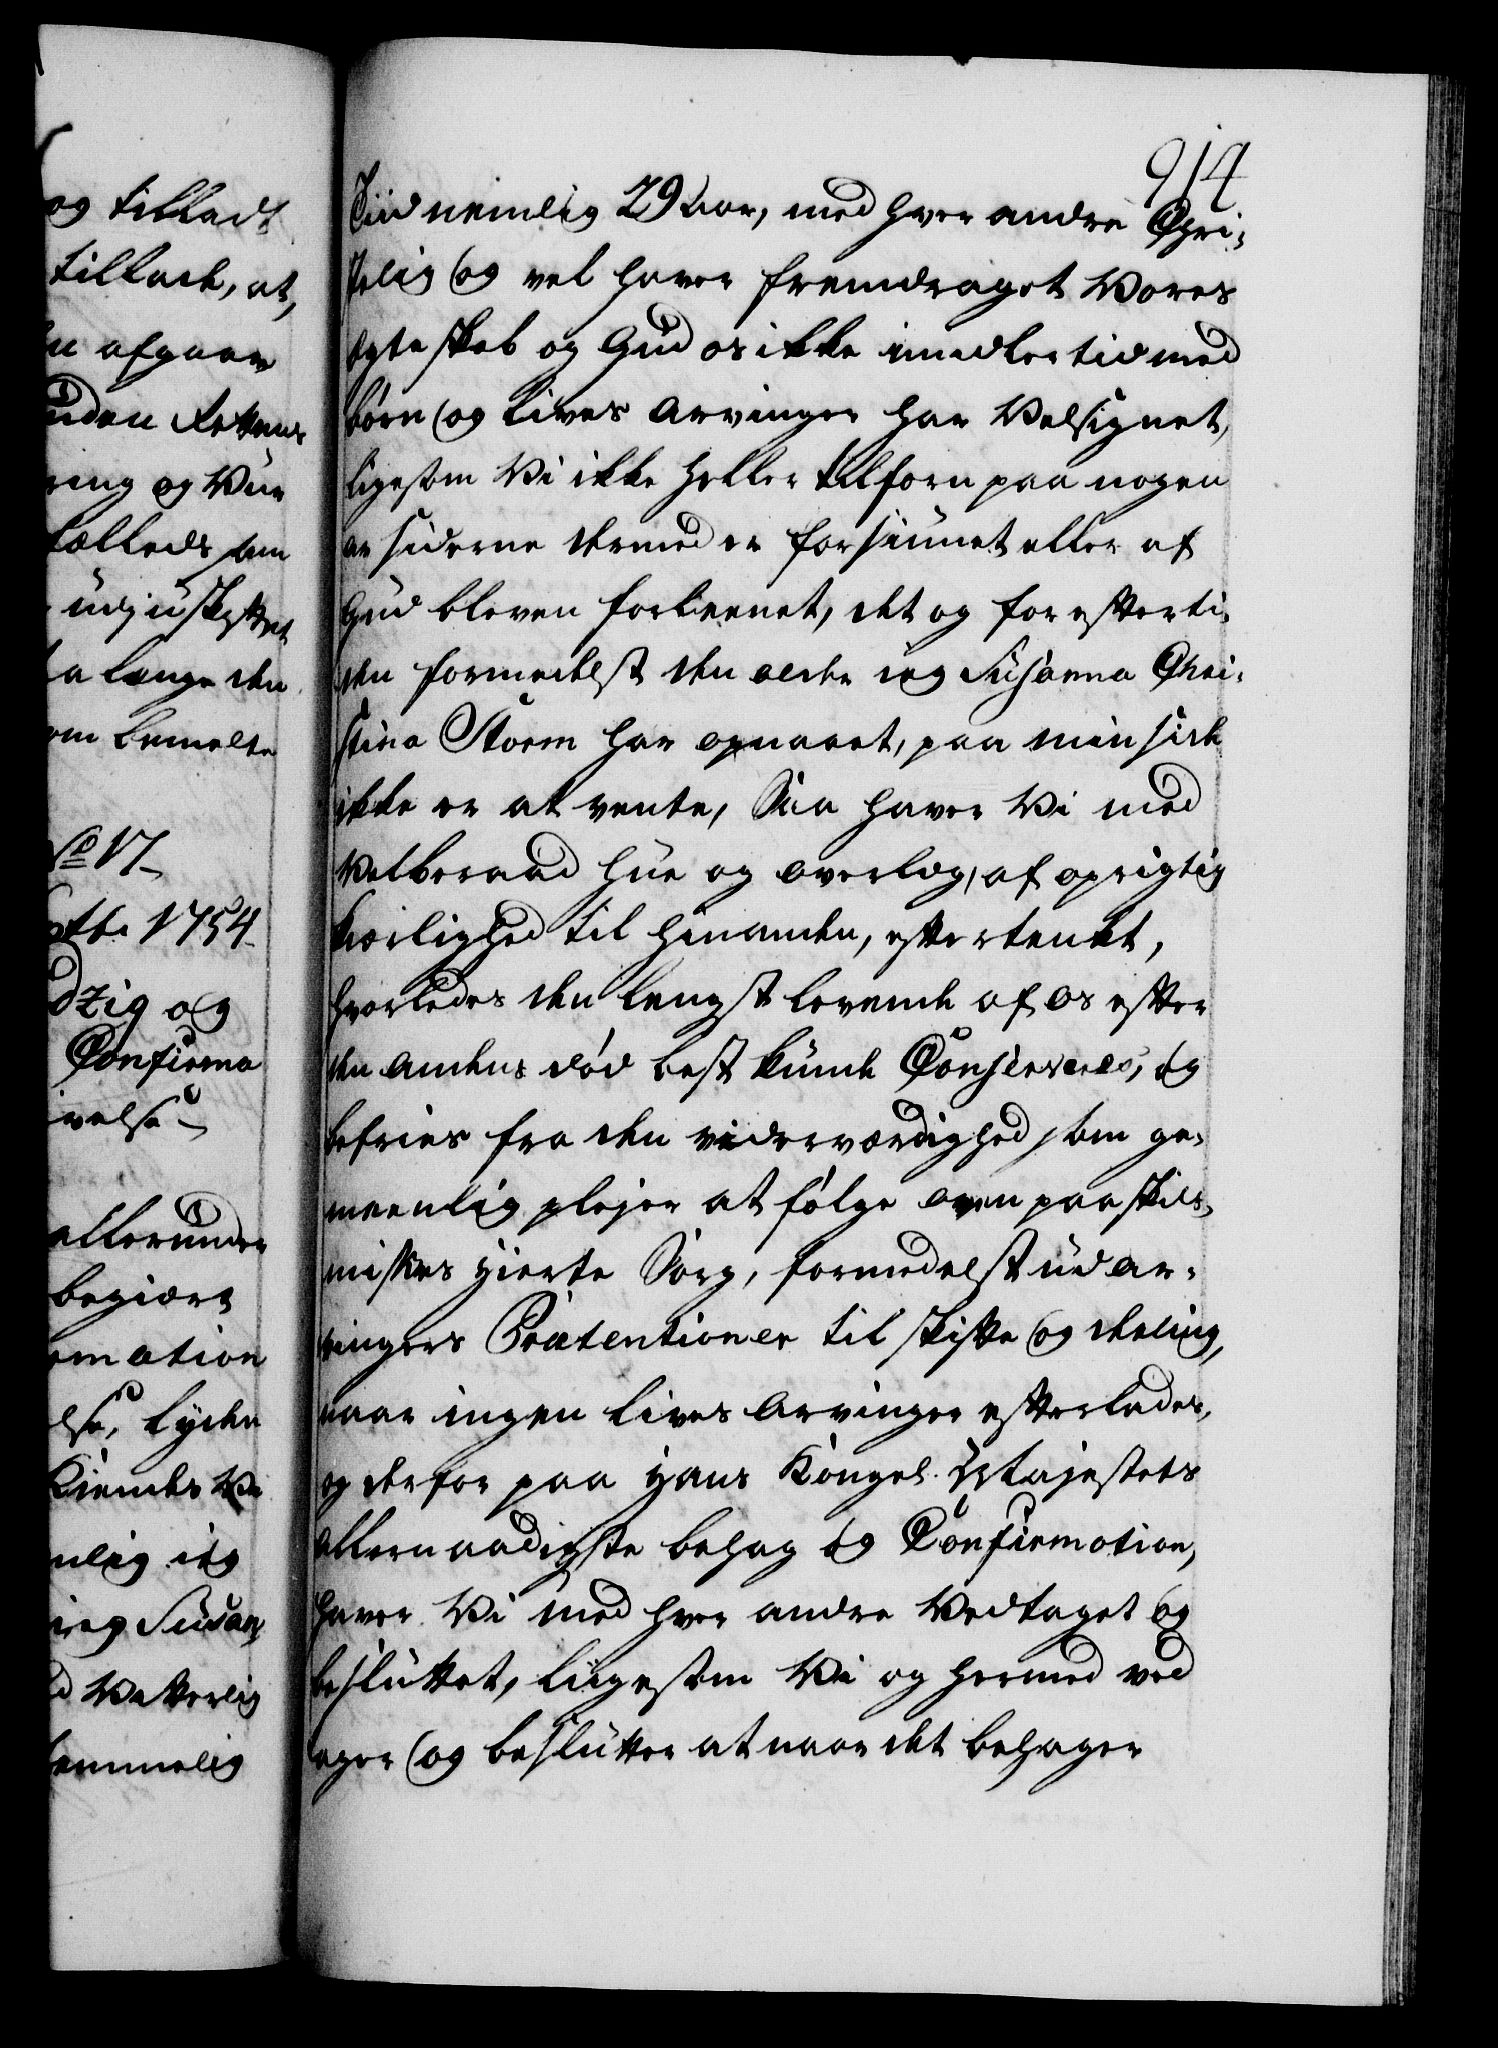 og tilladt
tillade, at,
n afgaar
uden Rettens
ring og Vur
sælleds som
udj u skiftet
a længe den
om bemelte
No 17
otbr 1754
dzig og
Confirma
ivelse
allerunder
begiært
rmation
lse, Lyden
Kiendes Vi
nlig ieg
ieg Susan,
d Vitterlig
emmelig
914
Tiid nemlig 29 Aar, med hver andre Chri-
stelig og vel haver fremdraget Vores
Egteskab og Gud os ikke imidlertid med
børn og Lives Arvinger har Velsignet,
ligesom Vi ikke heller tilforn paa nogen
ar siderne dermed er forsiunet eller af
Gud bleven forleenet, det og for efterti-
den formedelst den alder ieg Susanna Chri-
stina Storm har opnaaet, paa min side
ikke er at vente, Saa haver Vi med
Velberaad Hue og overlæg, af oprigtig
Kierlighed til hinanden, eftertenkt,
hvorledes den lengst levende af os efter
den andens død best kunde Conserveres, og
befries fra den viderværdighed som ge-
meenlig plejer at følge oven paa skils-
missens Hierte Sorg, formedelst ud ar-
vingers Prætentioner til skifte og deeling,
naar ingen Lives Arvinger efterlades,
og derfor paa Hans Kongel. Majestets
allernaadigste behag og Confirmation,
haver Vi med hver andre Vedtaget og
besluttet, liigesom Vi og hermed ved
tager og beslutter at naar det behager